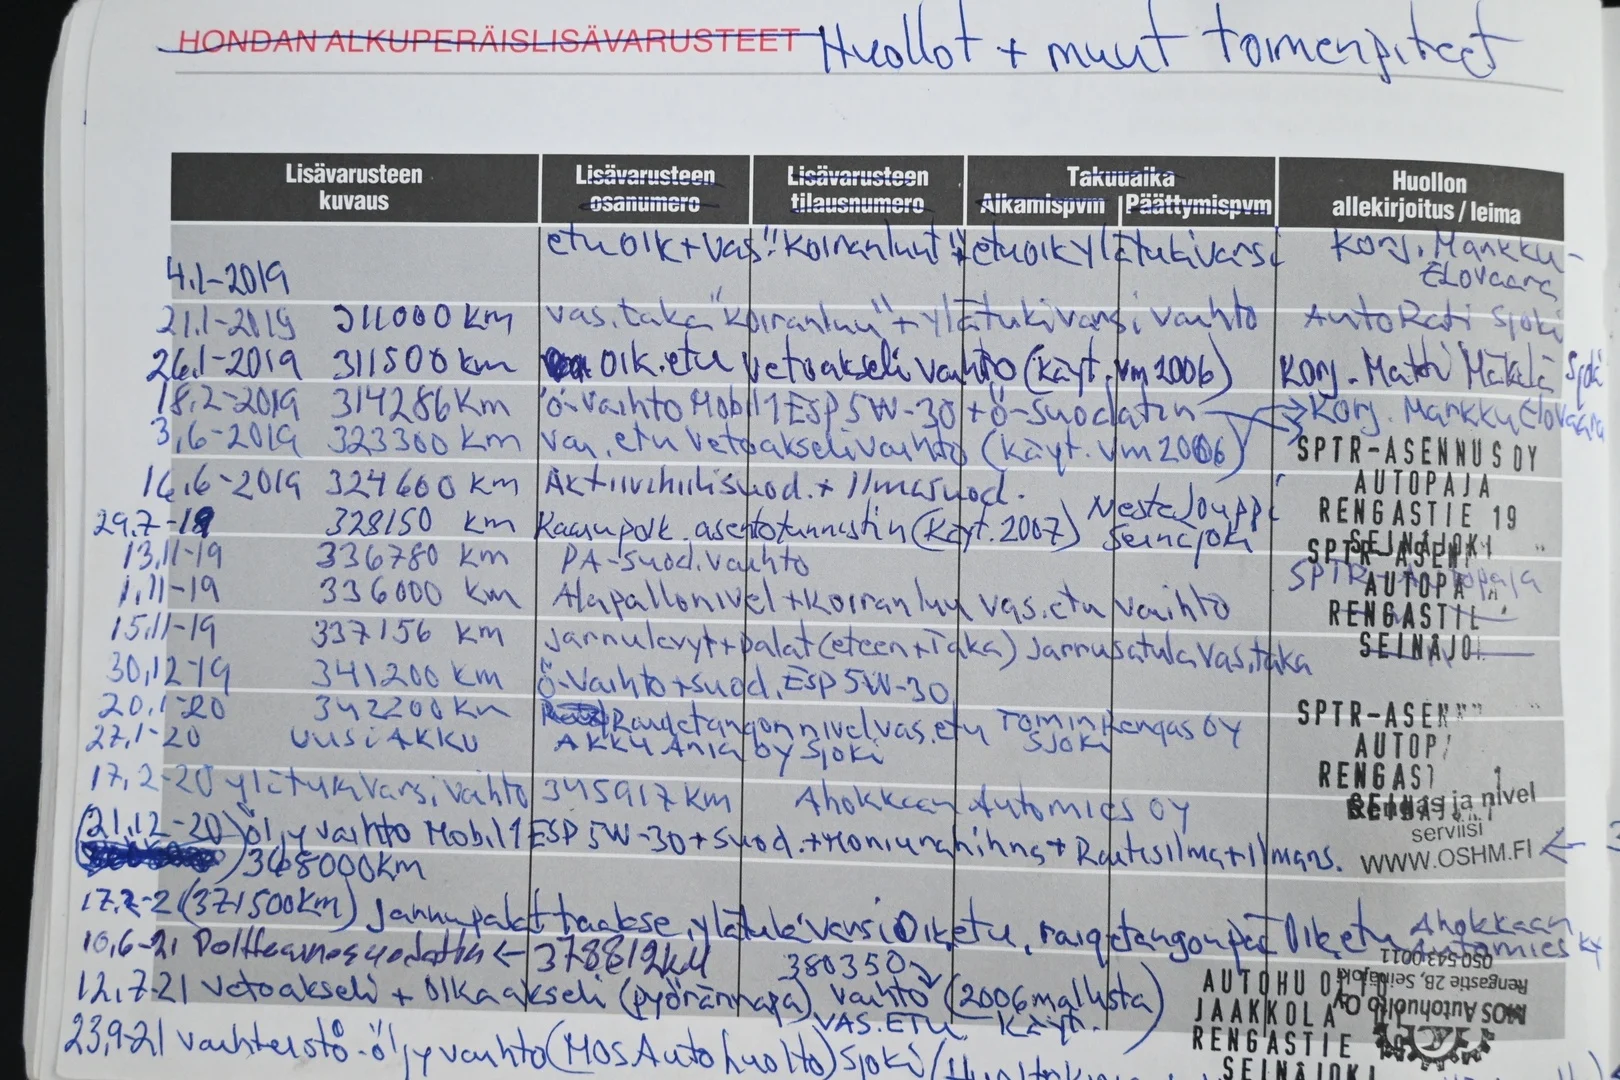 HONDAN ALKUPERÄISLISÄVARUSTEET Huollot + muut toimenpiteet
Lisävarusteen kuvaus Lisävarusteen osanumero Lisävarusteen tilausnumero Takuuaika Alkamispvm Päättymispvm Huollon allekirjoitus / leima
4.1-2019 etu oik + vas "koiranluut" + etuoik ylätukivarsi Korj. Markku Elovaara
21.1-2019 311000 km vas. taka "koiranluu" + ylätukivarsi vaihto AutoRati Sjoki
26.1-2019 311500 km oik. etu vetoakseli vaihto (käyt. vm 2006) Korj. Matti Mäkelä Sjoki
18.2-2019 314286 km ö-vaihto Mobil 1 ESP 5W-30 + ö-suodatin Korj. Markku Elovaara
3.6-2019 323300 km vas. etu vetoakseli vaihto (käyt. vm 2006)
SPTR-ASENNUS OY
AUTOPAJA
RENGASTIE 19
SEINÄJOKI
16.6-2019 324600 km Aktiivihiilisuod. + Ilmasuod.
29.7-19 328150 km Kaasupolk. asentotunnistin (käyt. 2007) Neste Jouppi Seinäjoki
13.11-19 336780 km PA-suod. vaihto SPTR-Autopaja
SPTR-ASENN
AUTOPA
RENGASTIE
SEINÄJO
1.11-19 336000 km Alapallonivel + koiranluu vas. etu vaihto
15.11-19 337156 km jarrulevyt + palat (eteen + taka) jarrusatula vas. taka
30.12-19 341200 km ö-vaihto + suod. ESP 5W-30
20.1-20 342200 km Raidetangon nivel vas. etu Tomin Rengas OY Sjoki
SPTR-ASENN
AUTOP
RENGAST
SEINÄJ
27.1-20 UUSI AKKU AKKU Ania OY Sjoki
17.2-20 ylätukivarsi vaihto 345917 km Ahokkaan Automies OY
Rengas ja nivel
serviisi
WWW.OSHM.FI
(21.12-20) öljyvaihto Mobil 1 ESP 5W-30 + suod. + moniurahihna + Raitisilma + Ilmans.
368000 km
17.2-21 (371500 km) jarrupalat taakse, ylätukivarsi Oik etu, raidetangonpää Oik etu Ahokkaan Automies ky
10.6-21 Polttoainesuodatin ← 378812 km
12.7-21 vetoakseli + olkaakseli (pyörännapa) 380350 vaihto (2006 mallista)
VAS. ETU Käyt.
MOS Autohuolto Oy
Rengastie 2B, Seinäjoki
050-5430011
AUTOHUOLTO
JAAKKOLA
RENGASTIE
SEINÄJOKI
23.9-21 vaihteistoöljyvaihto (MOS Autohuolto) Sjoki